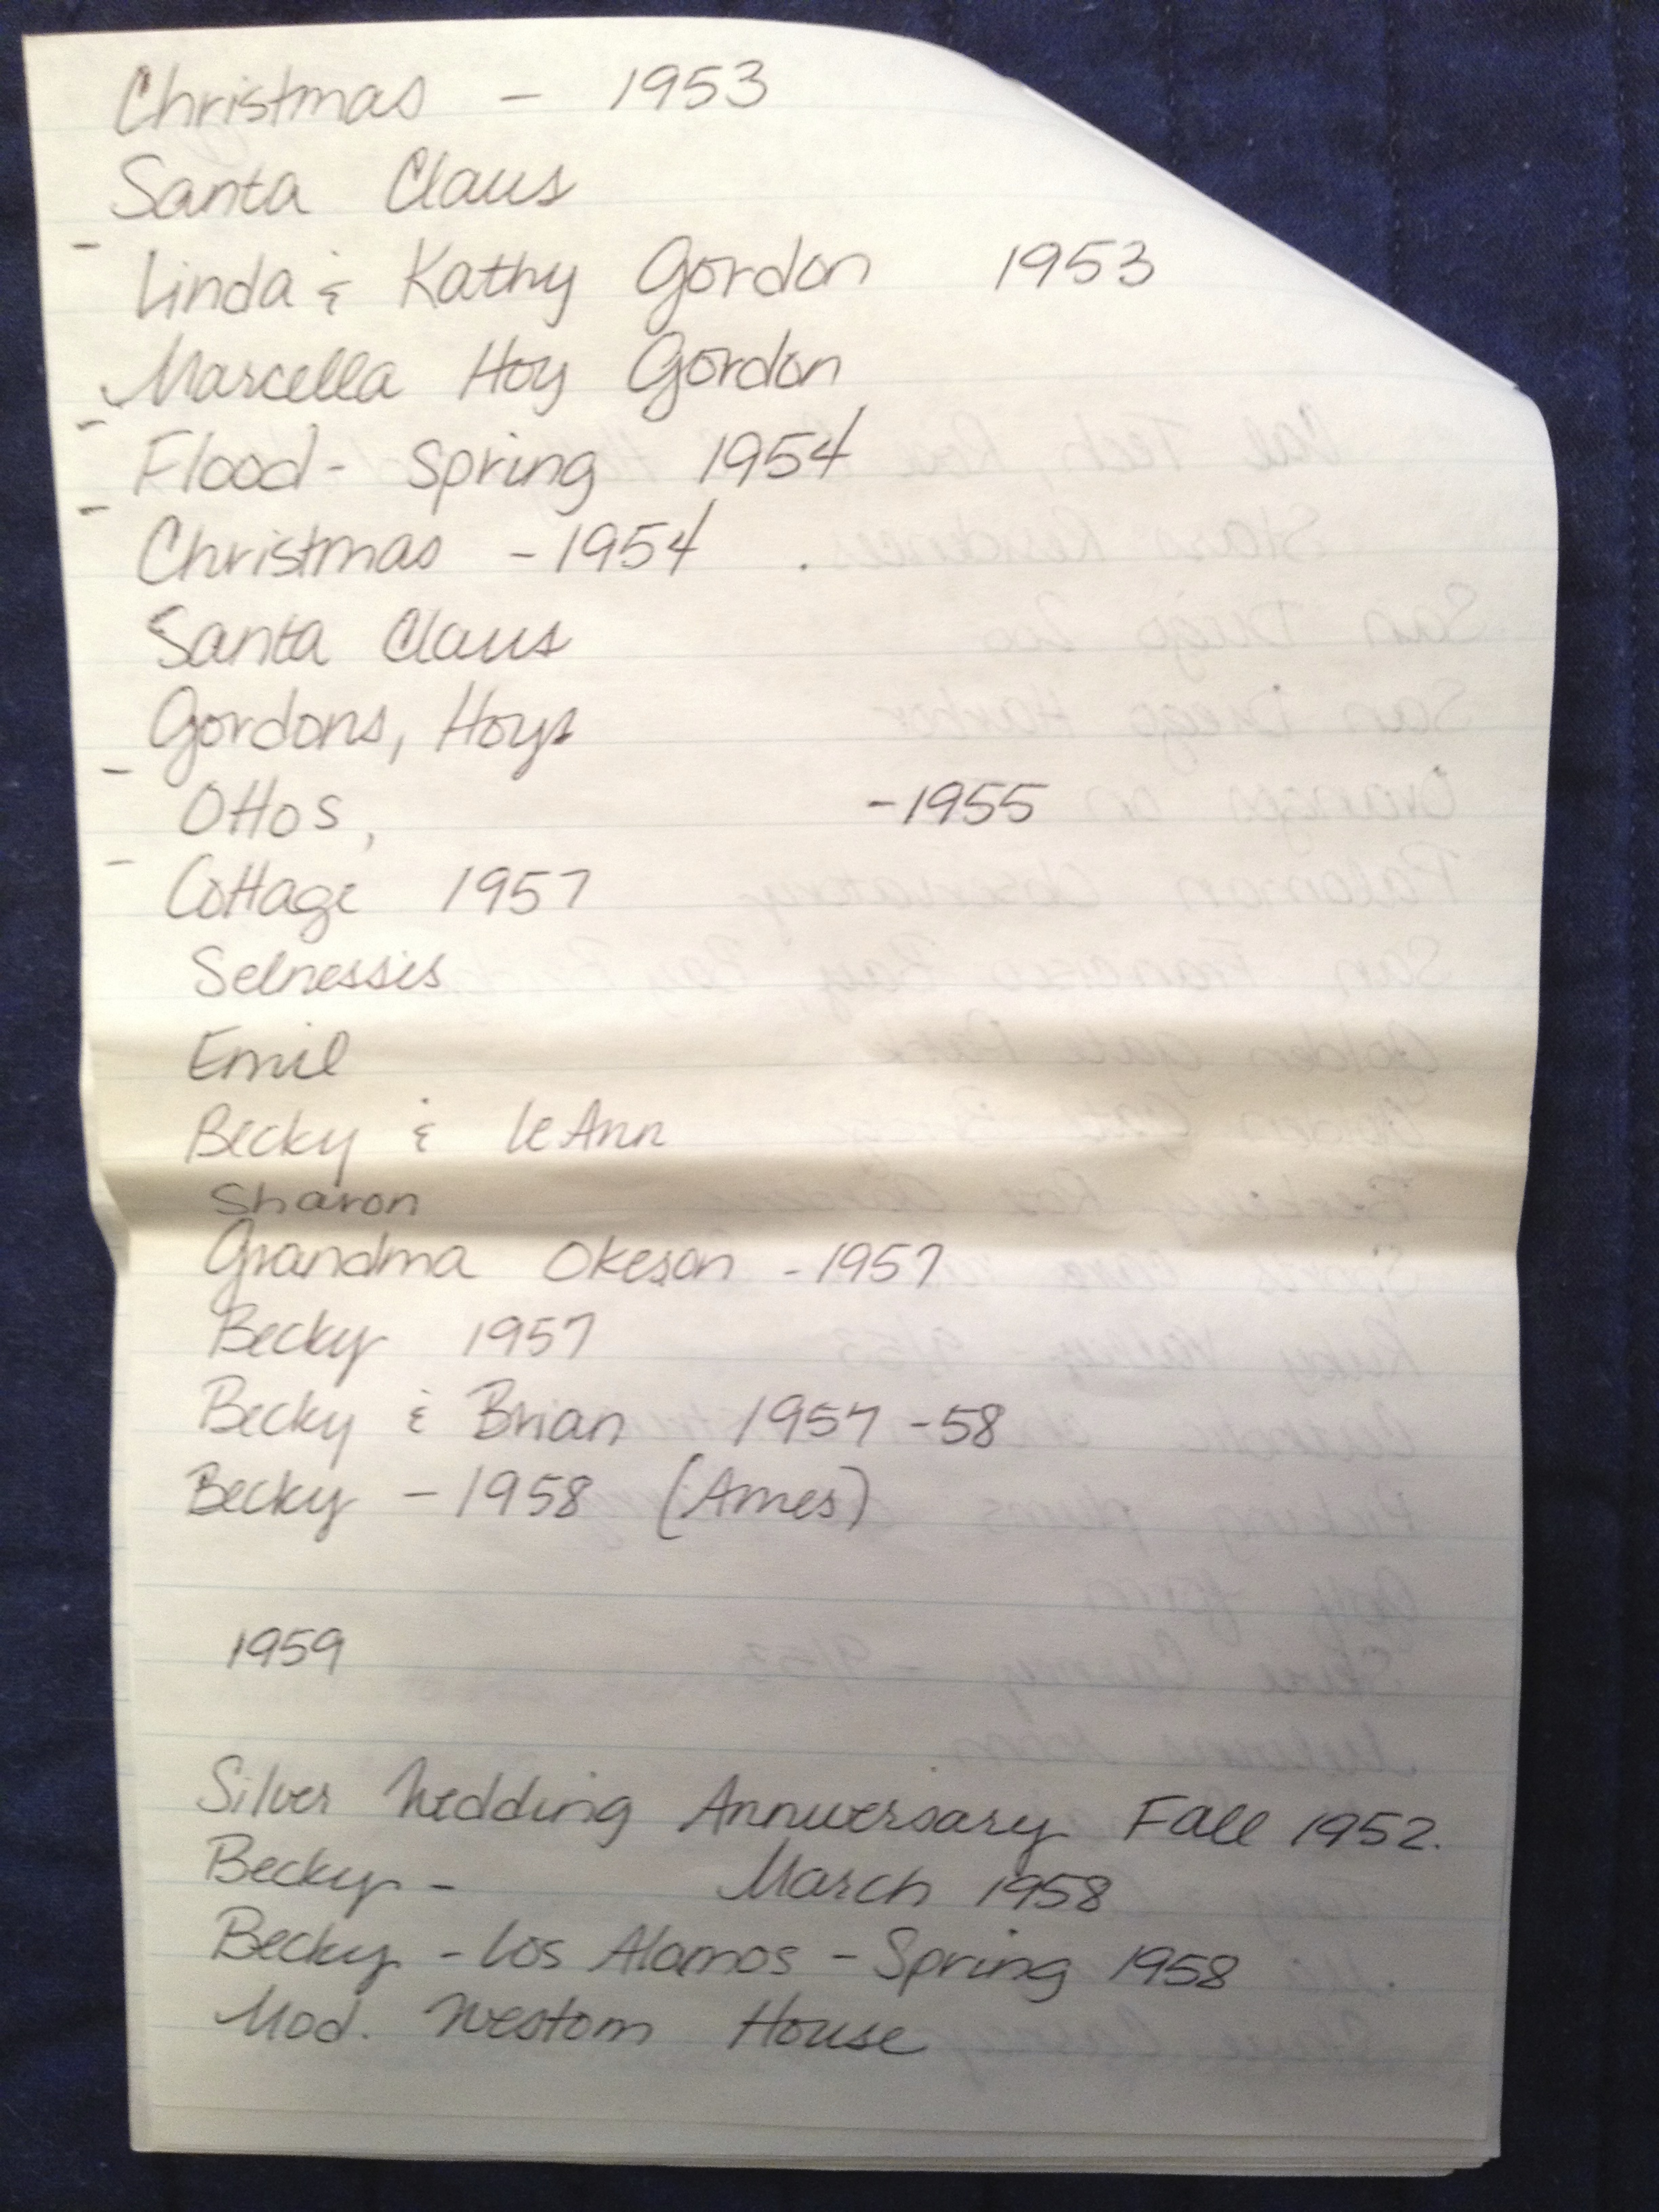 Christmas - 1953
Santa Claus
- Linda & Kathy Gordon 1953
Marcella Hoy Gordon
- Flood - Spring 1954
- Christmas - 1954
Santa Claus
Gordons, Hoys
- Ottos, - 1955
- Cottage 1957
Selnesses
Emil
Becky & LeAnn
Sharon
Grandma Okeson - 1957
Becky 1957
Becky & Brian 1957-58
Becky - 1958 (Ames)
1959
Silver Wedding Anniversary Fall 1952.
Becky - March 1958
Becky - Los Alamos - Spring 1958
Mod. Western House